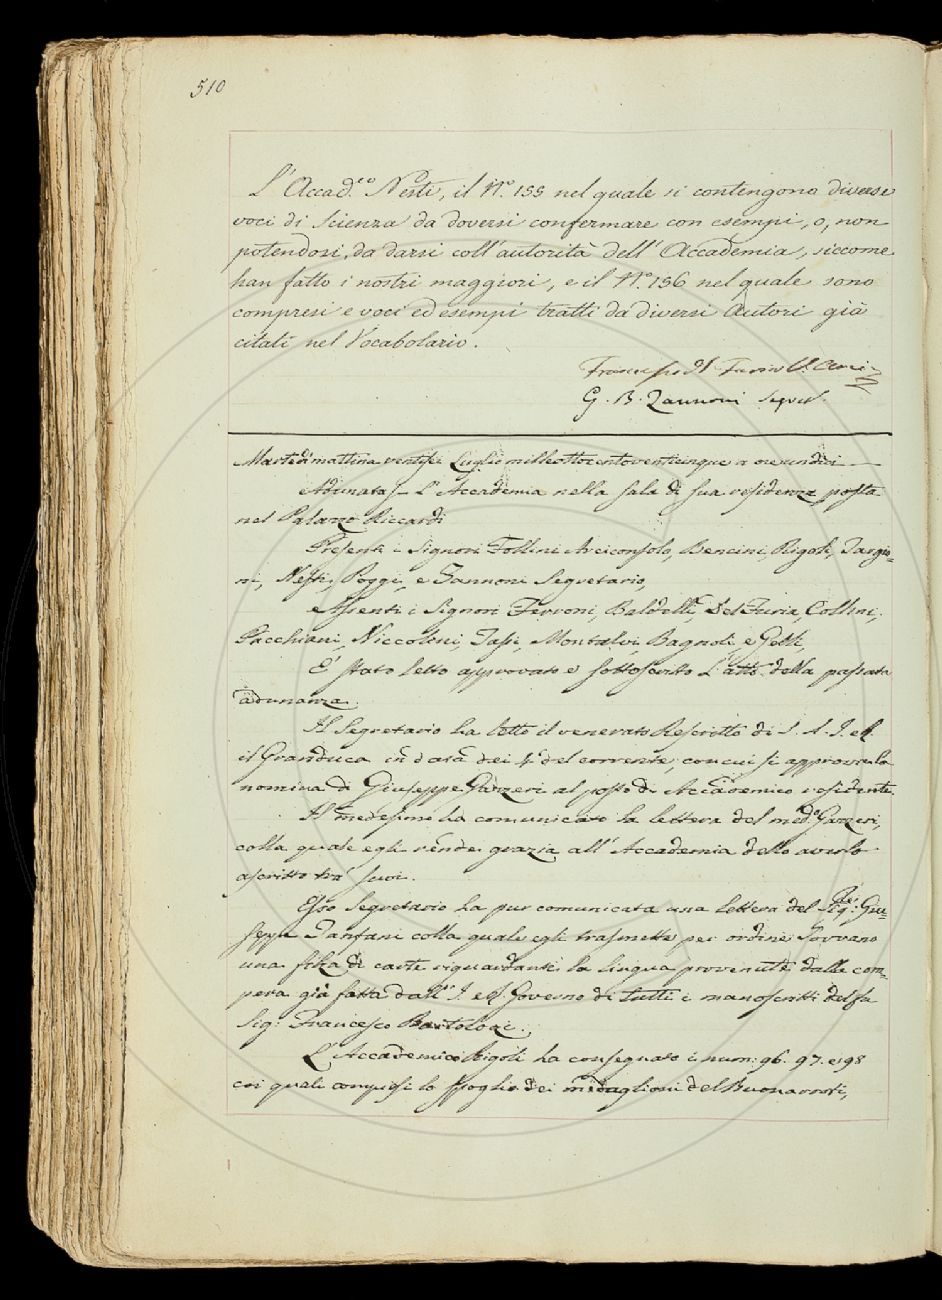 510
L'Accad.co Nesti, il N.o 155 nel quale si contengono diverse
voci di Scienza da doversi confermare con esempi, o, non
potendosi, da darsi coll'autorità dell'Accademia, siccome
han fatto i nostri maggiori, e il N.o 156 nel quale sono
compresi e voci ed esempi tratti da diversi Autori già
citati nel Vocabolario.
Francesco del Furia
G. B. Zannoni Segret.
Martedì mattina ventisei Luglio milleottocentoventicinque a ore undici
Adunatasi L'Accademia nella sala di sua residenza posta
nel Palazzo Riccardi
Presenti i Signori Follini Arciconsolo, Bencini, Rigoli, Targio=
ni, Nesti, Poggi, e Zannoni Segretario,
Assenti i Signori Ferroni, Baldelli, Del Furia, Collini,
Pacchiani, Niccolini, Tassi, Montalvi, Bagnoli, e Gelli,
E' stato letto approvato e sottoscritto L'atto della passata
adunanza.
Il Segretario ha letto il venerato Rescritto di S. A. I. e R.
il Granduca in data dei 4 del corrente, con cui si approva la
nomina di Giuseppe Gazzeri al posto di Accademico residente.
Il medesimo ha comunicato la lettera del med.o Gazzeri,
colla quale egli rende grazia all'Accademia dello averlo
ascritto tra' suoi.
Esso Segretario ha pur comunicata una Lettera del Sig.re Giu=
seppe Tanfani colla quale egli trasmette per ordine Sovrano
una filza di carte riguardanti la lingua provenute dalle com=
pera già fatta dall'I. e R. Governo di tutti i manoscritti del fu
Sig: Francesco Bartolozzi.
L'Accademico Rigoli ha consegnato i num: 96. 97. e 98
coi quali compiesi lo spoglio dei medaglioni del Buonarroti,